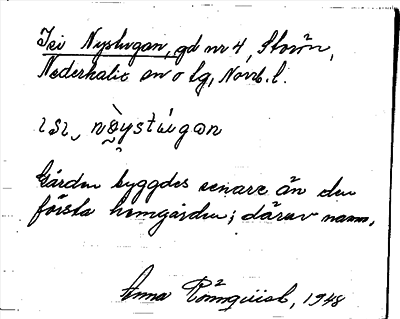 I Nystugan, gd nr 4, Storön,
Nederkalix sn o tg, Norrb. l.
ɪ sɩ, nỳstúgan
Gården byggdes senare än den
första hemgården; därav namn.
Anna Rönnqvist, 1948